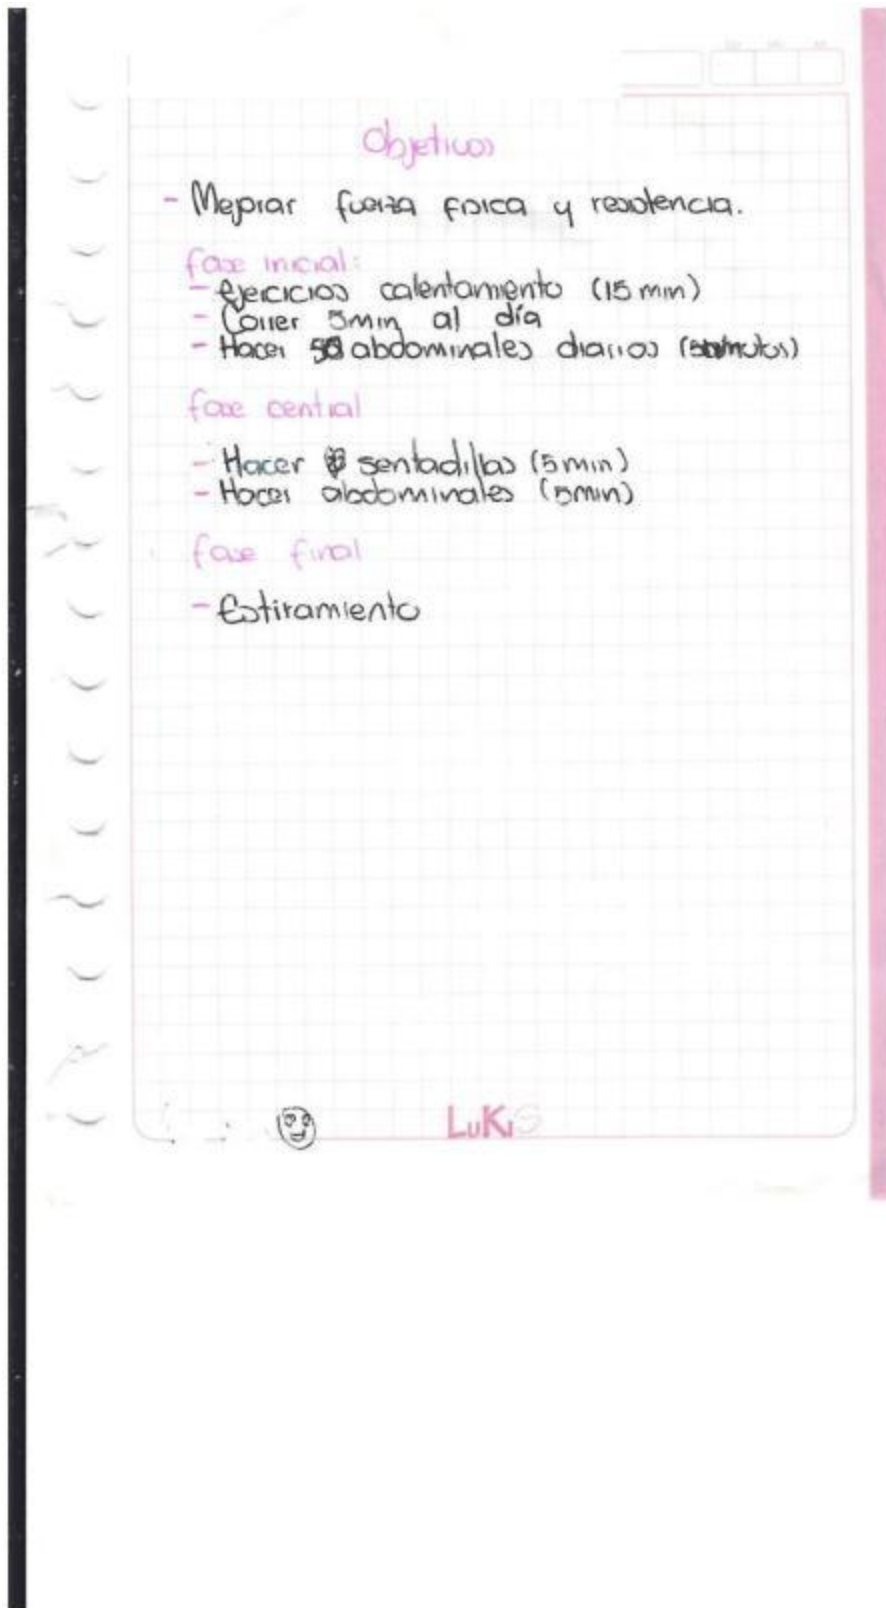 Objetivos
- Mejorar fuerza fisica y resistencia.
fase inicial:
- Ejercicios calentamiento (15 min)
- Correr 5min al día
- Hacer abdominales diarios
fase central
- Hacer sentadillas (5 min)
- Hacer abdominales (5min)
fase final
- Estiramiento
LuKiS